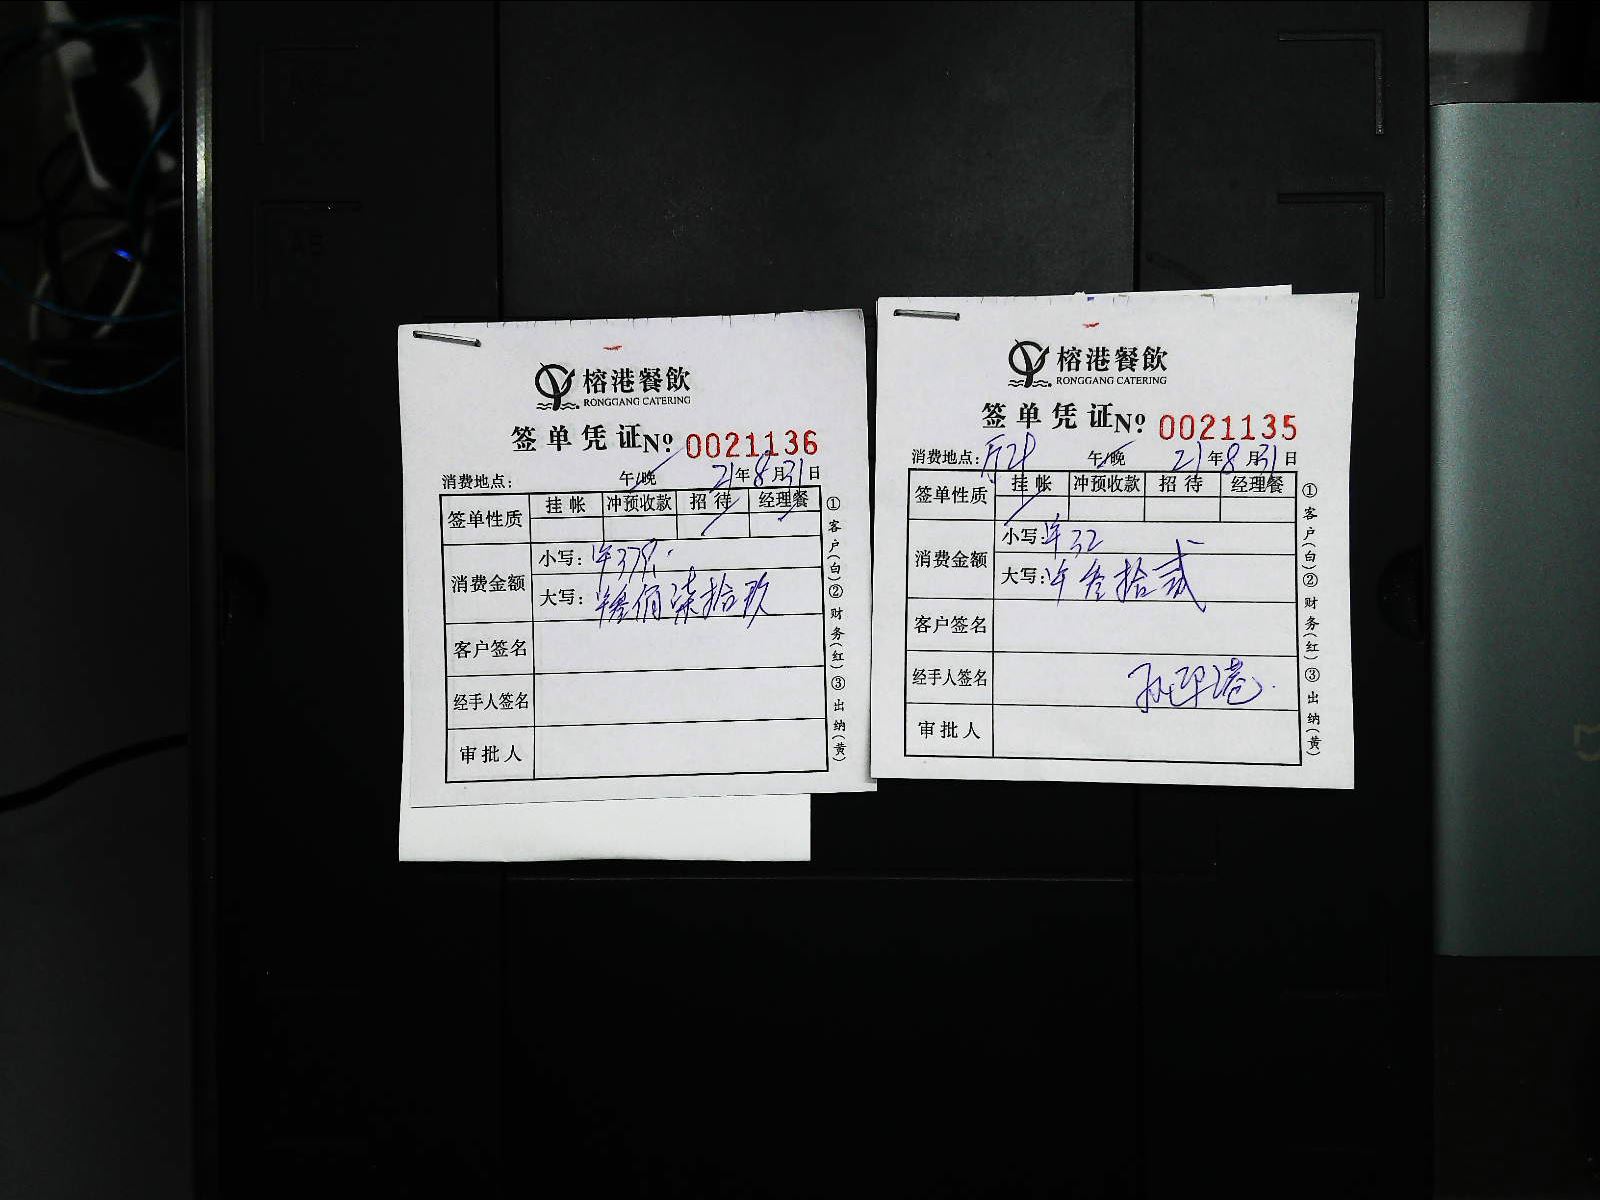 榕港餐飲
RONGGANG CATERING
签单凭证 Nº 0021136
消费地点: 午/晚 21年8月31日
签单性质 挂帐 冲预收款 招待 经理餐
消费金额
小写: ¥379.
大写: ¥叁佰柒拾玖
客户签名
经手人签名
审批人
①客户(白)②财务(红)③出纳(黄)
榕港餐飲
RONGGANG CATERING
签单凭证 Nº 0021135
消费地点: 午/晚 21年8月31日
签单性质 挂帐 冲预收款 招待 经理餐
消费金额
小写: ¥32
大写: ¥叁拾贰
客户签名
经手人签名
审批人
①客户(白)②财务(红)③出纳(黄)
A5